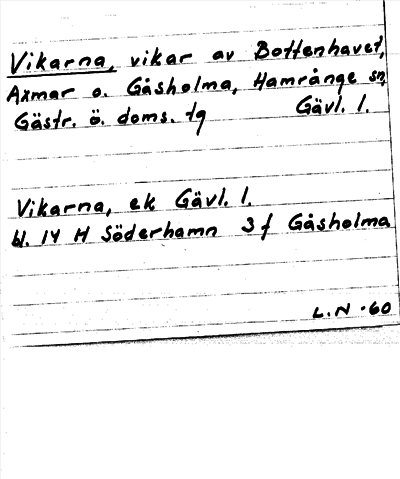 Vikarna, vikar av Bottenhavet,
Axmar o. Gåsholma, Hamrånge sn,
Gästr. ö. doms. tg Gävl. l.
Vikarna, ek Gävl. l.
bl. 14 H Söderhamn 3 f Gåsholma
L.N -60